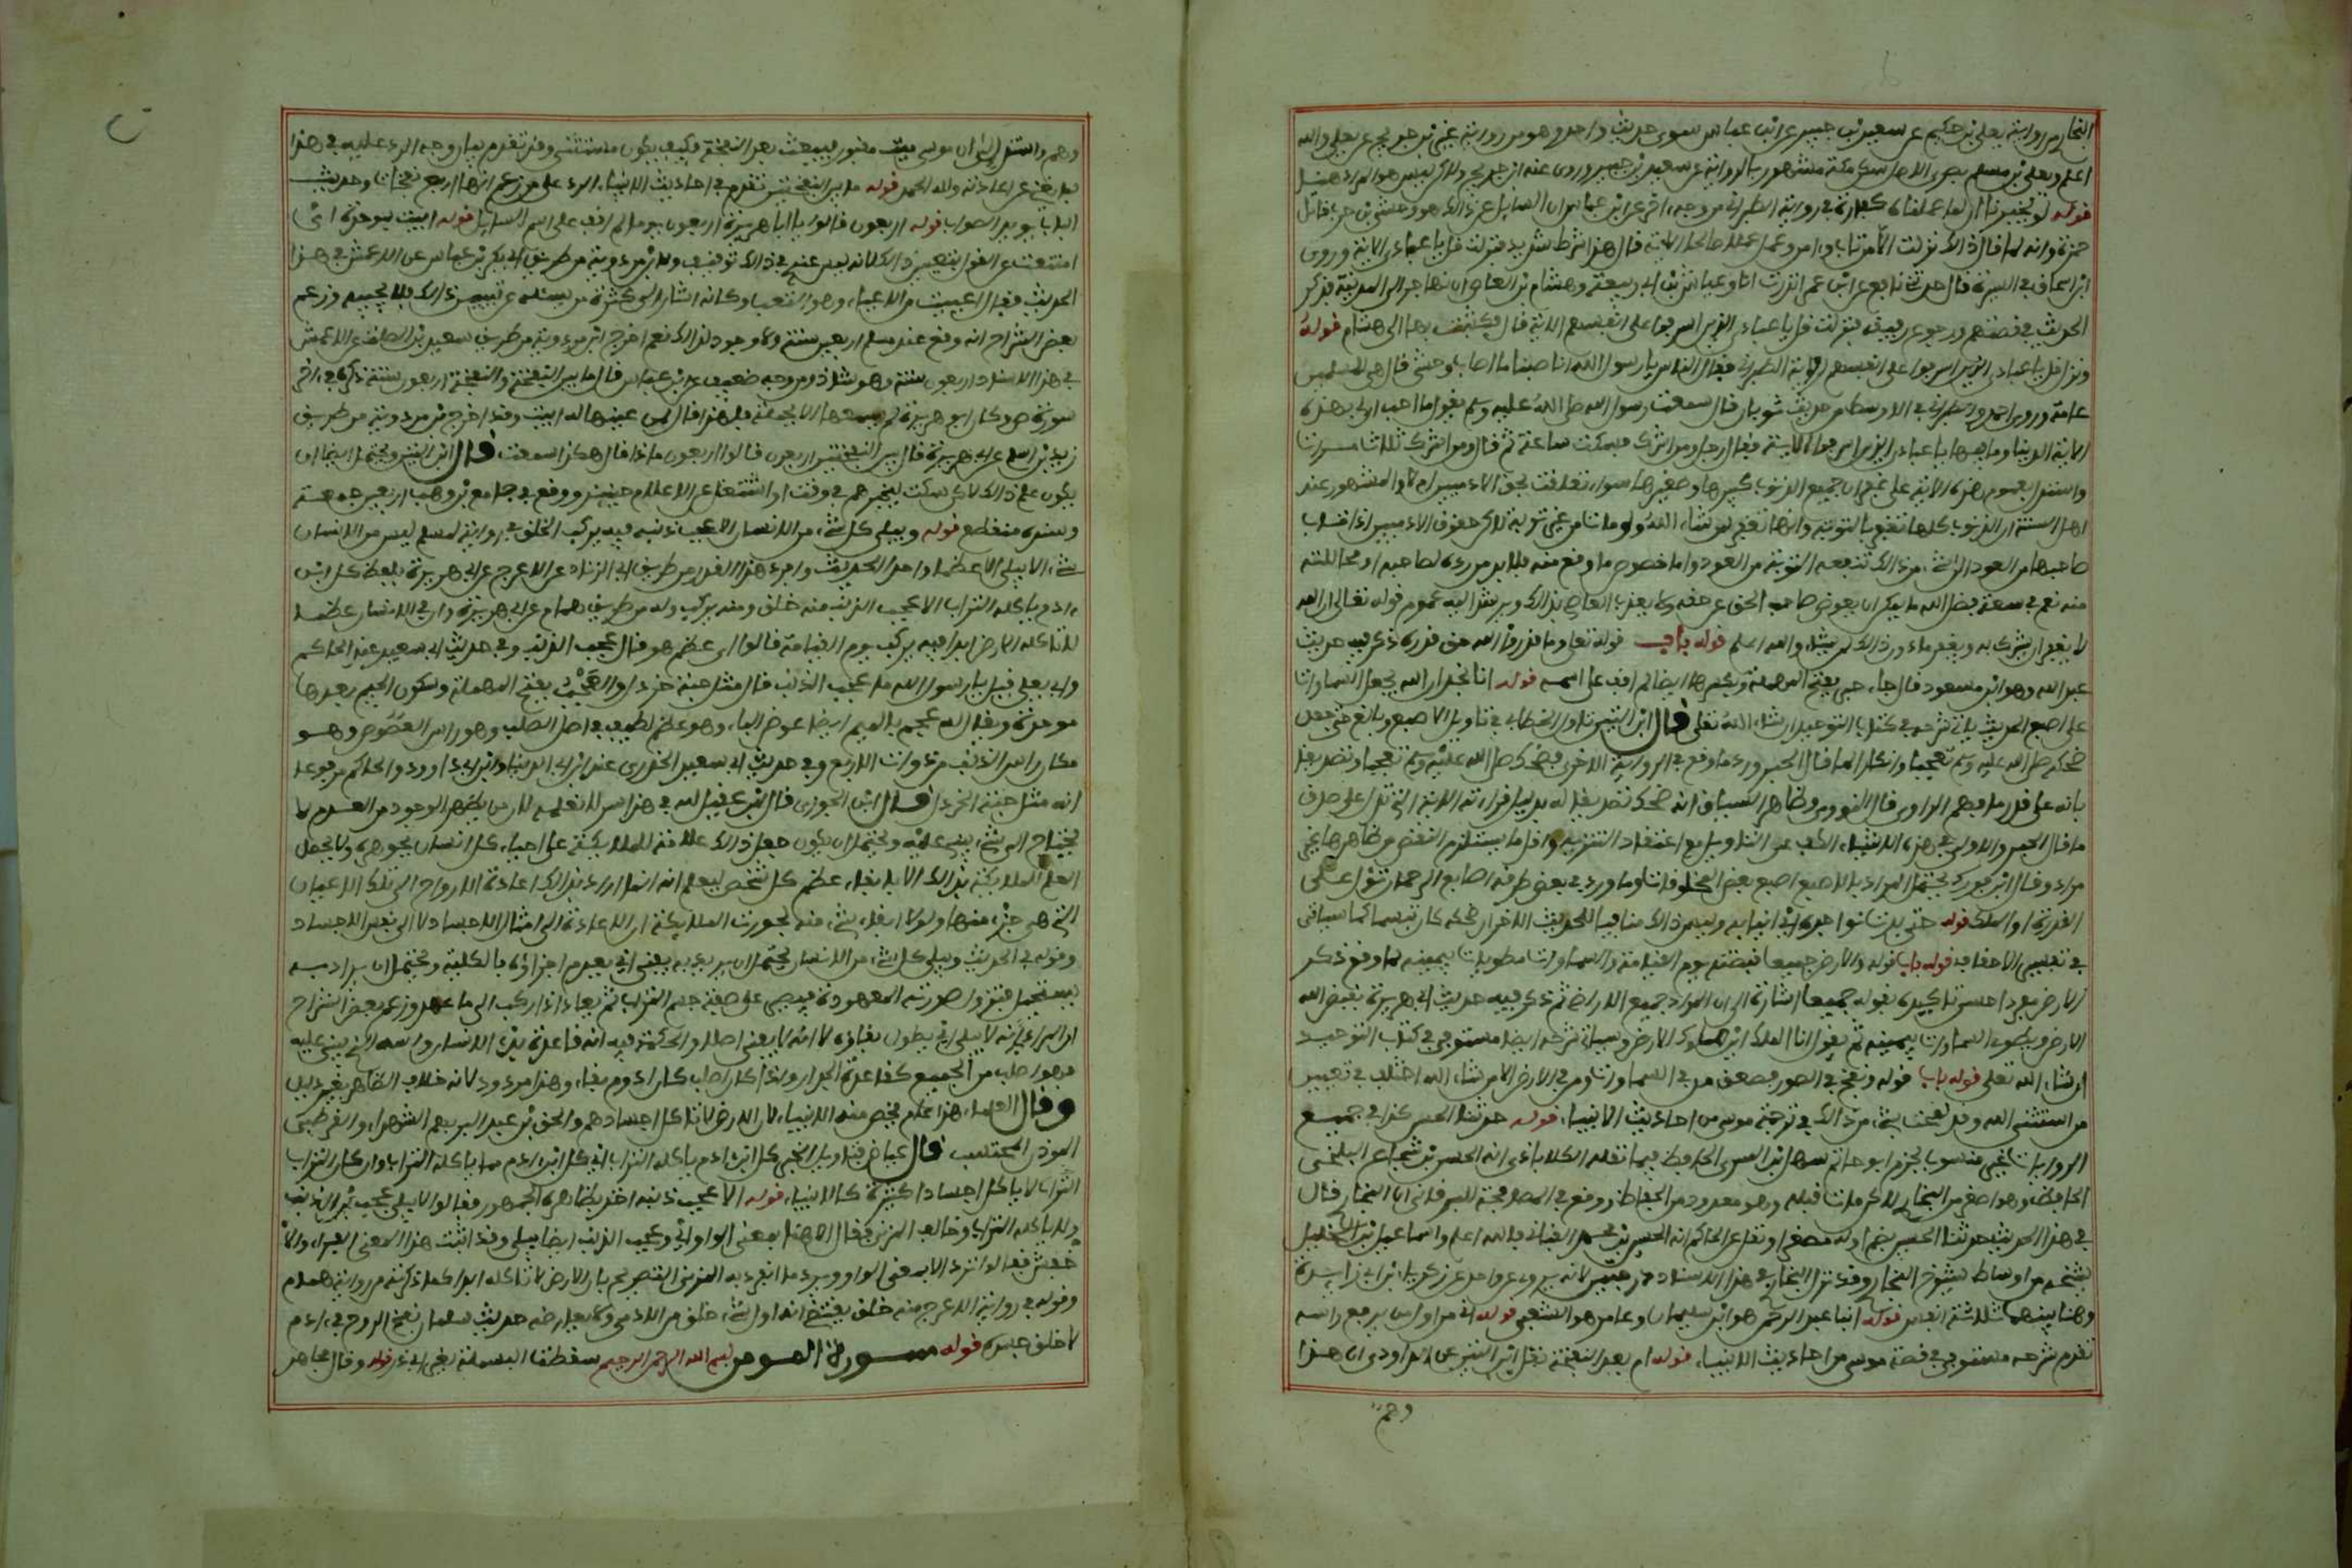 البخاري من رواية يعلى بن حكيم عن سعيد بن جبير عن ابن عباس سوى حديث واحد وهو من رواية غير ابن جريج عن يعلى والله
اعلم ويعلى بن مسلم بصري الاصل سكن مكة مشهور بالرواية عن سعيد بن جبير وروى عنه ابن جريج ولاكن ليس هو المراد هنا
قوله لو تخبرنا ان لما عملناه كفارة في رواية الطبراني من وجه ءاخر عن ابن عباس ان السايل عن ذلك هو وحشي بن حرب قاتل
حمزة وانه لما قال ذالك نزلت الا من تاب وءامن وعمل عملا صالحا الاية قال هذا شرط شديد فنزلت قل يا عبادي الاية وروى
ابن اسحاق في السيرة قال حدثني نافع عن ابن عمر اتزرت انا وعياش بن ابي ربيعة وهشام بن العاصي ان نهاجر الى المدينة فذكر
الحديث في قصتهم ورجوع رفيقه فنزلت قل يا عبادي الذين اسرفوا على انفسهم الاية قال فكتبت بها الى هشام قوله
ونزل قل يا عبادي الذين اسرفوا على انفسهم في رواية الطبراني فقال الناس يا رسول الله انا اصبنا ما اصاب وحشي قال هي للمسلمين
عامة وروى احمد والطبراني في الاوسط من حديث ثوبان قال سمعت رسول الله صلى الله عليه وسلم يقول ما احب ان لي بهذه
الاية الدنيا وما فيها يا عبادي الذين اسرفوا الاية فقال رجل ومن اشرك فسكت ساعة ثم قال ومن اشرك ثلاث مرات
واستدل بعموم هذه الاية على غفران جميع الذنوب كبيرها وصغيرها سواء تعلقت بحق الادميين ام لا والمشهور عند
اهل السنة ان الذنوب كلها تغفر بالتوبة وانها تغفر لمن شاء الله ولو مات من غير توبة لاكن حقوق الادميين اذا تاب
صاحبها من العود الى شيء من ذالك تنفعه التوبة من العود واما خصوص ما وقع منه فلا بد من رده لصاحبه او محاللته
منه نعم في سعة فضل الله ما يمكن ان يعوض صاحب الحق عن حقه ولا يعذب العاصي بذالك ويرشد اليه عموم قوله تعالى ان الله
لا يغفر ان يشرك به ويغفر ما دون ذالك لمن يشاء والله اعلم قوله باب قوله تعلى وما قدروا الله حق قدره ذكر فيه حديث
عبد الله وهو ابن مسعود قال جاء حبر بفتح المهملة وبكسرها ايضا لم اقف على اسمه قوله انا نجد ان الله يجعل السماوات
على اصبع الحديث ياتي شرحه في كتاب التوحيد ان شاء الله تعلى قال ابن التين تكلف الخطابي في تاويل الاصبع وبالغ حتى جعل
ضحكه صلى الله عليه وسلم تعجبا وانكارا لما قال الحبر ورد ما وقع في الرواية الاخرى فضحك صلى الله عليه وسلم تعجبا وتصديقا
بانه على قدر ما فهم الراوي قال النووي وظاهر السياق انه ضحك تصديقا له بدليل قراءته الاية التي تدل على صدق
ما قال الحبر والاولى في هذه الاشياء الكف عن التاويل مع اعتقاد التنزيه فان كل ما يستلزم النقص من ظاهرها غير
مراد وقال ابن فورك يحتمل ان يراد بالاصبع اصبع بعض المخلوقات وما ورد في بعض طرقه اصابع الرحمان يدل على
القدرة او الملك قوله حتى بدت نواجده اي انيابه وليس ذالك منافيا للحديث الاخر ان ضحكه كان تبسما كما سياتي
في تفسير الاحقاف قوله باب قوله والارض جميعا قبضته يوم القيامة والسماوات مطويات بيمينه لما وقع ذكر
الارض مفردا حسن تاكيده بقوله جميعا اشارة الى ان المراد جميع الاراضي ثم ذكر فيه حديث ابي هريرة يقبض الله
الارض ويطوي السماوات بيمينه ثم يقول انا الملك اين ملوك الارض وسياتي شرحه ايضا مستوفى في كتاب التوحيد
ان شاء الله تعلى قوله باب قوله ونفخ في الصور فصعق من في السماوات ومن في الارض الا من شاء الله اختلف في تعيين
من استثنى الله وقد لمحت بشيء من ذالك في ترجمة موسى من احاديث الانبياء قوله حدثنا الحسن كذا في جميع
الروايات غير منسوب فجزم ابو حاتم سهل بن السري الحافظ فيما نقله الكلاباذي انه الحسن بن شجاع البلخي
الحافظ وهو اصغر من البخاري لاكن مات قبله وهو معدود من الحفاظ ووقع في المصافحة للبرقاني ان البخاري قال
في هذا الحديث حدثنا الحسين بضم اوله مصغرا ونقل عن الحاكم انه الحسين بن محمد القباني فالله اعلم واسماعيل بن الخليل
شيخه من اوساط شيوخ البخاري وقد نزل البخاري في هذا الاسناد درجتين لانه يروي عن واحد عن زكرياء بن ابي زايدة
وهنا بينهما ثلاثة انفس قوله انا عبد الرحيم هو ابن سليمان وعامر هو الشعبي قوله اني من اول من يرفع راسه
تقدم شرحه مستوفى في قصة موسى من احاديث الانبياء قوله ام بعد النفخة نقل ابن التين عن الداودي ان هذا
وهم
وهم واستدل الى ان موسى ميت مقبور فيبعث بعد النفخة فكيف يكون مستثنى وقد تقدم بيان وجه الرد عليه في هذا
بما يغني عن اعادته ولله الحمد قوله ما بين النفختين تقدم في احاديث الانبياء الرد على من زعم انها اربع نفخات وحديث
الباب يويد الصواب قوله اربعون قالوا يا ابا هريرة اربعون يوما لم اقف على اسم السايل قوله ابيت بموحدة اي
امتنعت عن القول بتعيين ذالك لانه ليس عندي في ذالك توقيف ولابن مردويه من طريق ابي بكر بن عياش عن الاعمش في هذا
الحديث فقال اعييت من الاعياء وهو التعب وكانه اشار الى كثرة من يسئله عن تبيين ذالك فلا يجيبه وزعم
بعض الشراح انه وقع عند مسلم اربعين سنة ولا وجود لذالك نعم اخرج ابن مردويه من طريق سعيد بن الصلت عن الاعمش
في هذا الاسناد اربعون سنة وهو شاذ ومن وجه ضعيف عن ابن عباس قال ما بين النفخة والنفخة اربعون سنة ذكره في ءاخر
سورة ص وكان ابو هريرة لم يسمعها الا مجملة فلهذا قال لمن عينها له ابيت وقد اخرج ابن مردويه من طريق
زيد بن اسلم عن ابي هريرة قال بين النفختين اربعون قالوا اربعون ماذا قال هكذا سمعت قال ابن التين ويحتمل ايضا ان
يكون علم ذالك لاكن سكت ليخبرهم في وقت او اشتغل عن الاعلام حينيذ ووقع في جامع بن وهب اربعين جمعة
وسنده منقطع قوله ويبلى كل شيء من الانسان الا عجب ذنبه فيه يركب الخلق في رواية لمسلم ليس من الانسان
شيء الا يبلى الا عظما واحدا الحديث وافرد هذا القدر من طريق ابي الزناد عن الاعرج عن ابي هريرة بلفظ كل ابن
ءادم ياكله التراب الا عجب الذنب منه خلق ومنه يركب وله من طريق همام عن ابي هريرة ان في الانسان عظما
لا تاكله الارض ابدا فيه يركب يوم القيامة قالوا اي عظم هو قال عجب الذنب وفي حديث ابي سعيد عند الحاكم
وابي يعلى قيل يا رسول الله ما عجب الذنب قال مثل حبة خردل والعجب بفتح المهملة وسكون الجيم بعدها
موحدة ويقال له عجم بالميم ايضا عوض الباء وهو عظم لطيف في اصل الصلب وهو راس العصعص وهو
مكان راس الذنب من ذوات الاربع وفي حديث ابي سعيد الخدري عند ابن ابي الدنيا وابن ابي داوود والحاكم مرفوعا
انه مثل حبة الخردل قال ابن الجوزي قال ابن عقيل لله في هذا سر لا نعلمه لان من يظهر الوجود من العدم لا
يحتاج الى شيء يبني عليه ويحتمل ان يكون جعل ذالك علامة للملايكة على احياء كل انسان بجوهره ولا يحصل
العلم للملايكة بذالك الا بابقاء عظم كل شخص ليعلم انه انما اراد بذالك اعادة الارواح الى تلك الاعيان
التي هي جزء منها ولولا ابقاء شيء منه لجوزت الملايكة ان الاعادة الى امثال الاجساد لا الى نفس الاجساد
وقوله في الحديث ويبلى كل شيء من الانسان يحتمل ان يريد به يفنى اي يعدم اجزاؤه بالكلية ويحتمل ان يراد به
يستحيل فتزول صورته المعهودة فيصير على صفة جسم التراب ثم يعاد اذا ركب الى ما عهد وزعم بعض الشراح
ان المراد انه لا يبلى اي يطول بقاؤه لا انه لا يفنى اصلا والحكمة فيه انه قاعدة بدء الانسان واسه الذي يبني عليه
فهو اصلب من الجميع كقاعدة الجدار واذا كان اصلب كان ادوم بقاء وهذا مردود لانه خلاف الظاهر بغير دليل
وقال العلماء هذا عام يخص منه الانبياء لان الارض لا تاكل اجسادهم والحق ابن عبد البر بهم الشهداء والقرطبي
الموذن المحتسب قال عياض فتاويل الخبر كل ابن ءادم ياكله التراب اي كل ابن ءادم مما ياكله التراب وان كان التراب
لا ياكل اجسادا كثيرة كالانبياء قوله الا عجب ذنبه اخذ بظاهره الجمهور فقالوا لا يبلى عجب الذنب
ولا ياكله التراب وخالف المزني فقال الا هنا بمعنى الواو اي وعجب الذنب ايضا يبلى وقد اثبت هذا المعنى الفراء والا
خفش فقالوا ترد الا بمعنى الواو ويرد ما انفرد به المزني التصريح بان الارض لا تاكله ابدا كما ذكرته من رواية همام
وقوله في رواية الاعرج منه خلق يقتضي انه اول شيء خلق من الادمي ولا يعارضه حديث سلمان نفخ الروح في ءادم
لا خلق جسده قوله سورة المومن بسم الله الرحمن الرحيم سقطت البسملة لغير ابي ذر قوله وقال مجاهد